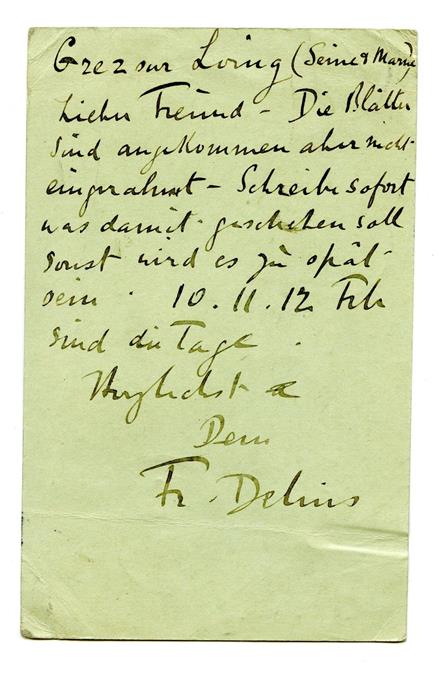 Grez sur Loing (Seine & Marne)
Lieber Freund – Die Blätter
sind angekommen aber nicht
eingerahmt – Schreibe sofort
was damit geschehen soll
sonst wird es zu spät
sein. 10. 11. 12 Feb
sind die Tage.
Herzlichst
Dein
Fr. Delius